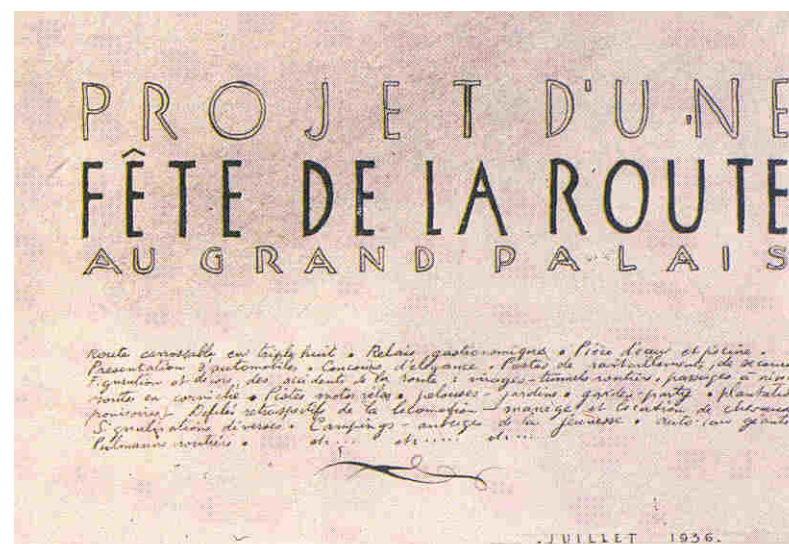 PROJET D'UNE
FÊTE DE LA ROUTE
AU GRAND PALAIS
Route carrossable en triple huit • Relais gastronomique • Pièce d'eau et piscine •
Présentation d'automobiles • Concours d'élégance • Postes de ravitaillement, de secours
Figuration et décors, des accidents de la route : virages - tunnels routiers, passages à nive
routes en corniche • Pistes motos vélos • pelouses - jardins • garden-party • plantatio
provisoires • Défilés rétrospectifs de la locomotion - manège et location de chevaux
Signalisations diverses • Campings - auberges de la jeunesse • auto-cars géants
Pullmanns routiers • etc... etc..... etc...
JUILLET 1936.